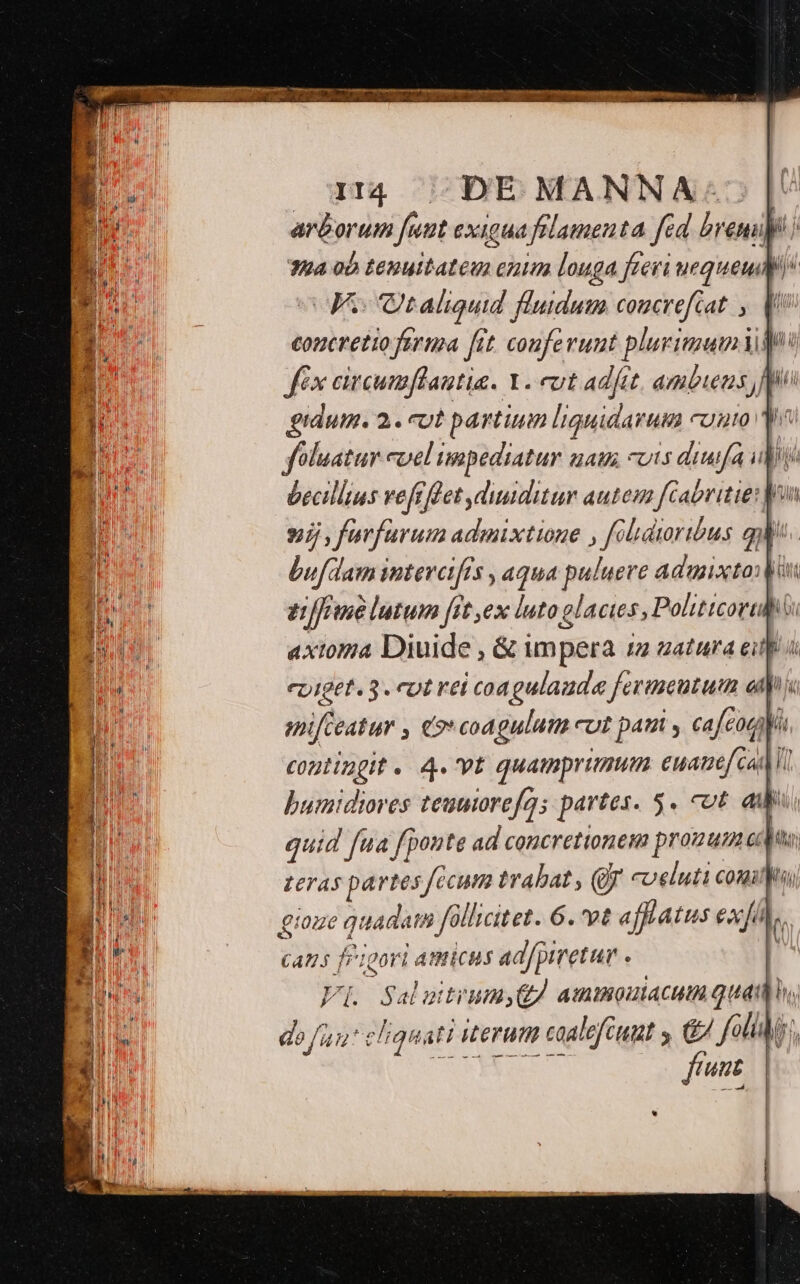 114 DE MANNA
arborum ſunt exigua filamenta ſed
ma ob tenuitatem enim longa fieri
V. Vt aliquid fluidum concreſcat ,
concretio firma ſit conferunt plurimum
ſex circumſtantiæ. 1. vt adſit ambiens
gidum. 2. vt partium liquidarum vnio
ſoluatur vel impediatur nam vis diuiſa
becillius reſiſtet, diuiditur autem ſcabritie
nij, furfurum admixtione , ſolidioribus
buſdam interciſis , aqua puluere
tiſſimè lutum fit, ex luto glacies, Politicorum
axioma Diuide , & impera in natura
viget. 3. vt rei coagulandæ fermentum
miſceatur , & coagulum vt pani ,
contingit . 4. vt quamprimum
humidiores tenuioreſq; partes. 5. vt
quid ſua ſponte ad concretionem pronum
teras partes ſecum trahat, & veluti
gione quadam ſollicitet. 6. vt afflatus
cans frigori amicus adſpiretur .
VI. Sal nitrum, & ammoniacum
do ſunt eliquati iterum coaleſcunt , &
fiunt